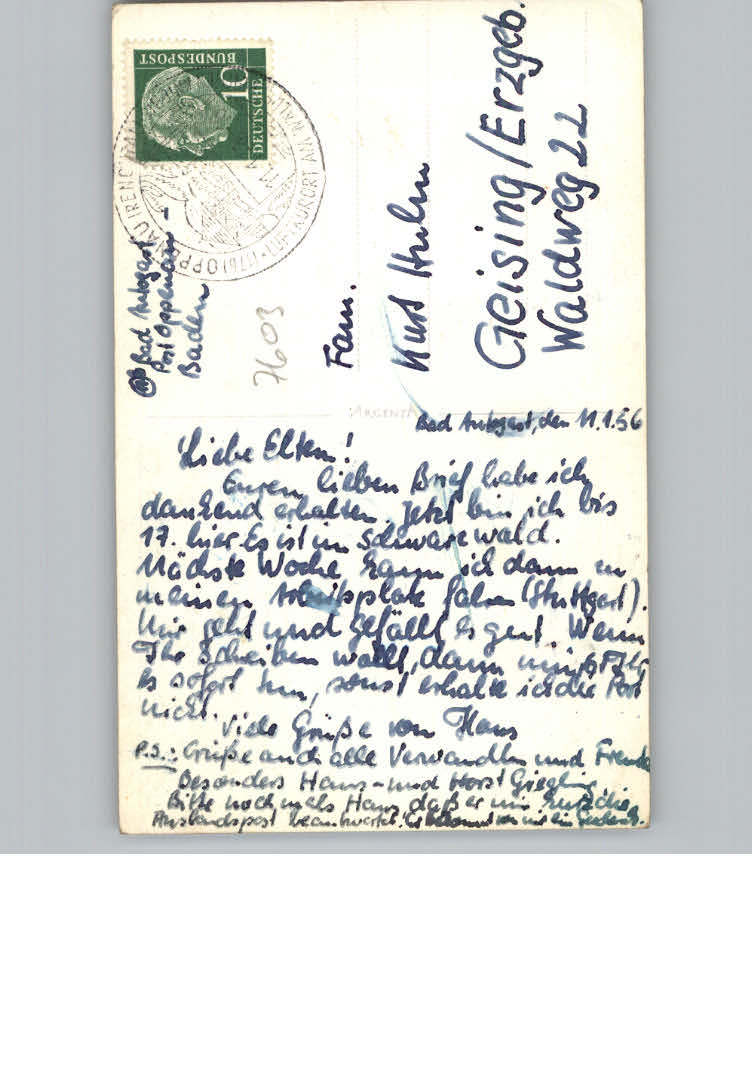 DEUTSCHE
BUNDESPOST
10
(17b) OPPENAU (RENCHTAL)
LUFTKURORT AM
Bad Antogast
Post Oppenau -
Baden
7603
Fam.
Kurt Huhn
Geising/Erzgeb.
Waldweg 22
ARGENTA
Bad Antogast, den 11.1.56
Liebe Eltern!
Euren lieben Brief habe ich
dankend erhalten. Jetzt bin ich bis
17. hier. Es ist im Schwarzwald.
Nächste Woche kann ich dann zu
meinen Arbeitsplatz fahren (Stuttgart).
Mir geht und gefällt es gut. Wenn
Ihr Schreiben wollt, dann müßt Ihr
es sofort tun, sonst erhalte ich die Post
nicht.
Viele Grüße von Hans
P.S.: Grüße an alle Verwandten und Freunde
Besonders Hans- und Horst Giegling
Bitte nochmals Hans daß er mir
Auslandspost beantwortet. Er bekommt von mir ein